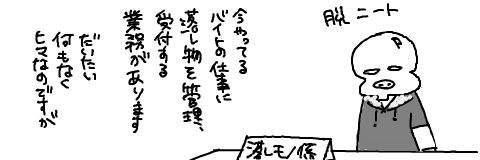 脱ニート
今やってる
バイトの仕事に
落し物を管理、
受付する
業務があります
だいたい
何もなく
ヒマなのですが
落しモノ係